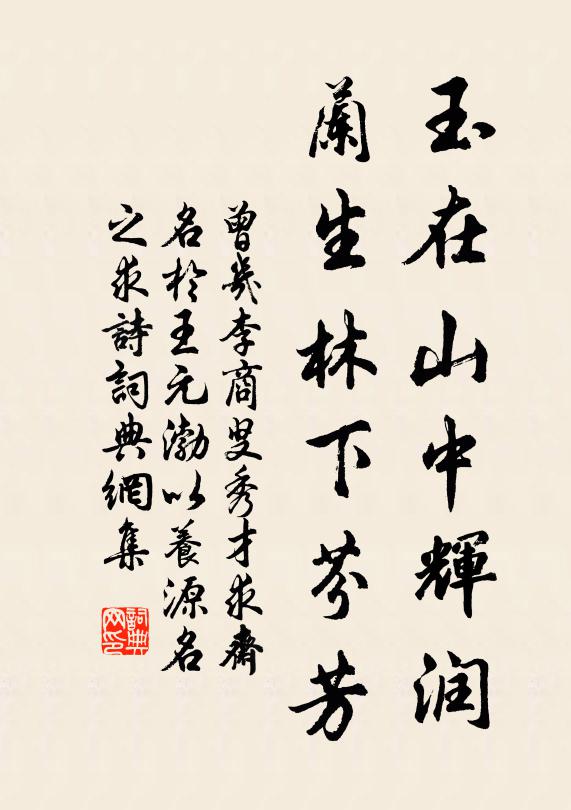 玉在山中輝润
蘭生林下芬芳
曾幾李商叟秀才求齋
名於王元渤以養源名
之求詩詞典網集
詞典网印